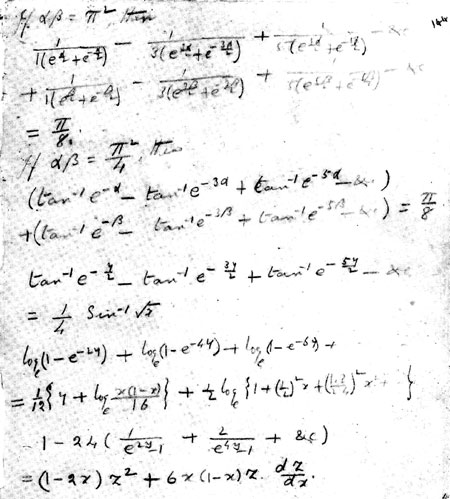 If αβ = π², then
1/(1(e^{α/2}+e^{-α/2})) − 1/(3(e^{3α/2}+e^{-3α/2})) + 1/(5(e^{5α/2}+e^{-5α/2})) − &c
+ 1/(1(e^{β/2}+e^{-β/2})) − 1/(3(e^{3β/2}+e^{-3β/2})) + 1/(5(e^{5β/2}+e^{-5β/2})) − &c
= π/8.
If αβ = π²/4, then
(tan⁻¹ e^{-α} − tan⁻¹ e^{-3α} + tan⁻¹ e^{-5α} − &c)
+(tan⁻¹ e^{-β} − tan⁻¹ e^{-3β} + tan⁻¹ e^{-5β} − &c) = π/8
tan⁻¹ e^{-y/2} − tan⁻¹ e^{-3y/2} + tan⁻¹ e^{-5y/2} − &c
= 1/4 Sin⁻¹ √x
log_e(1−e^{-2y}) + log_e(1−e^{-4y}) + log_e(1−e^{-6y}) +
= 1/12 {y + log_e x(1−x)/16} + 1/2 log {1 + (1/2)² x + (1·3/2·4)² x² + }
1 − 24 (1/(e^{2y}−1) + 2/(e^{4y}−1) + &c)
= (1−2x) z² + 6x(1−x) z · dz/dx.